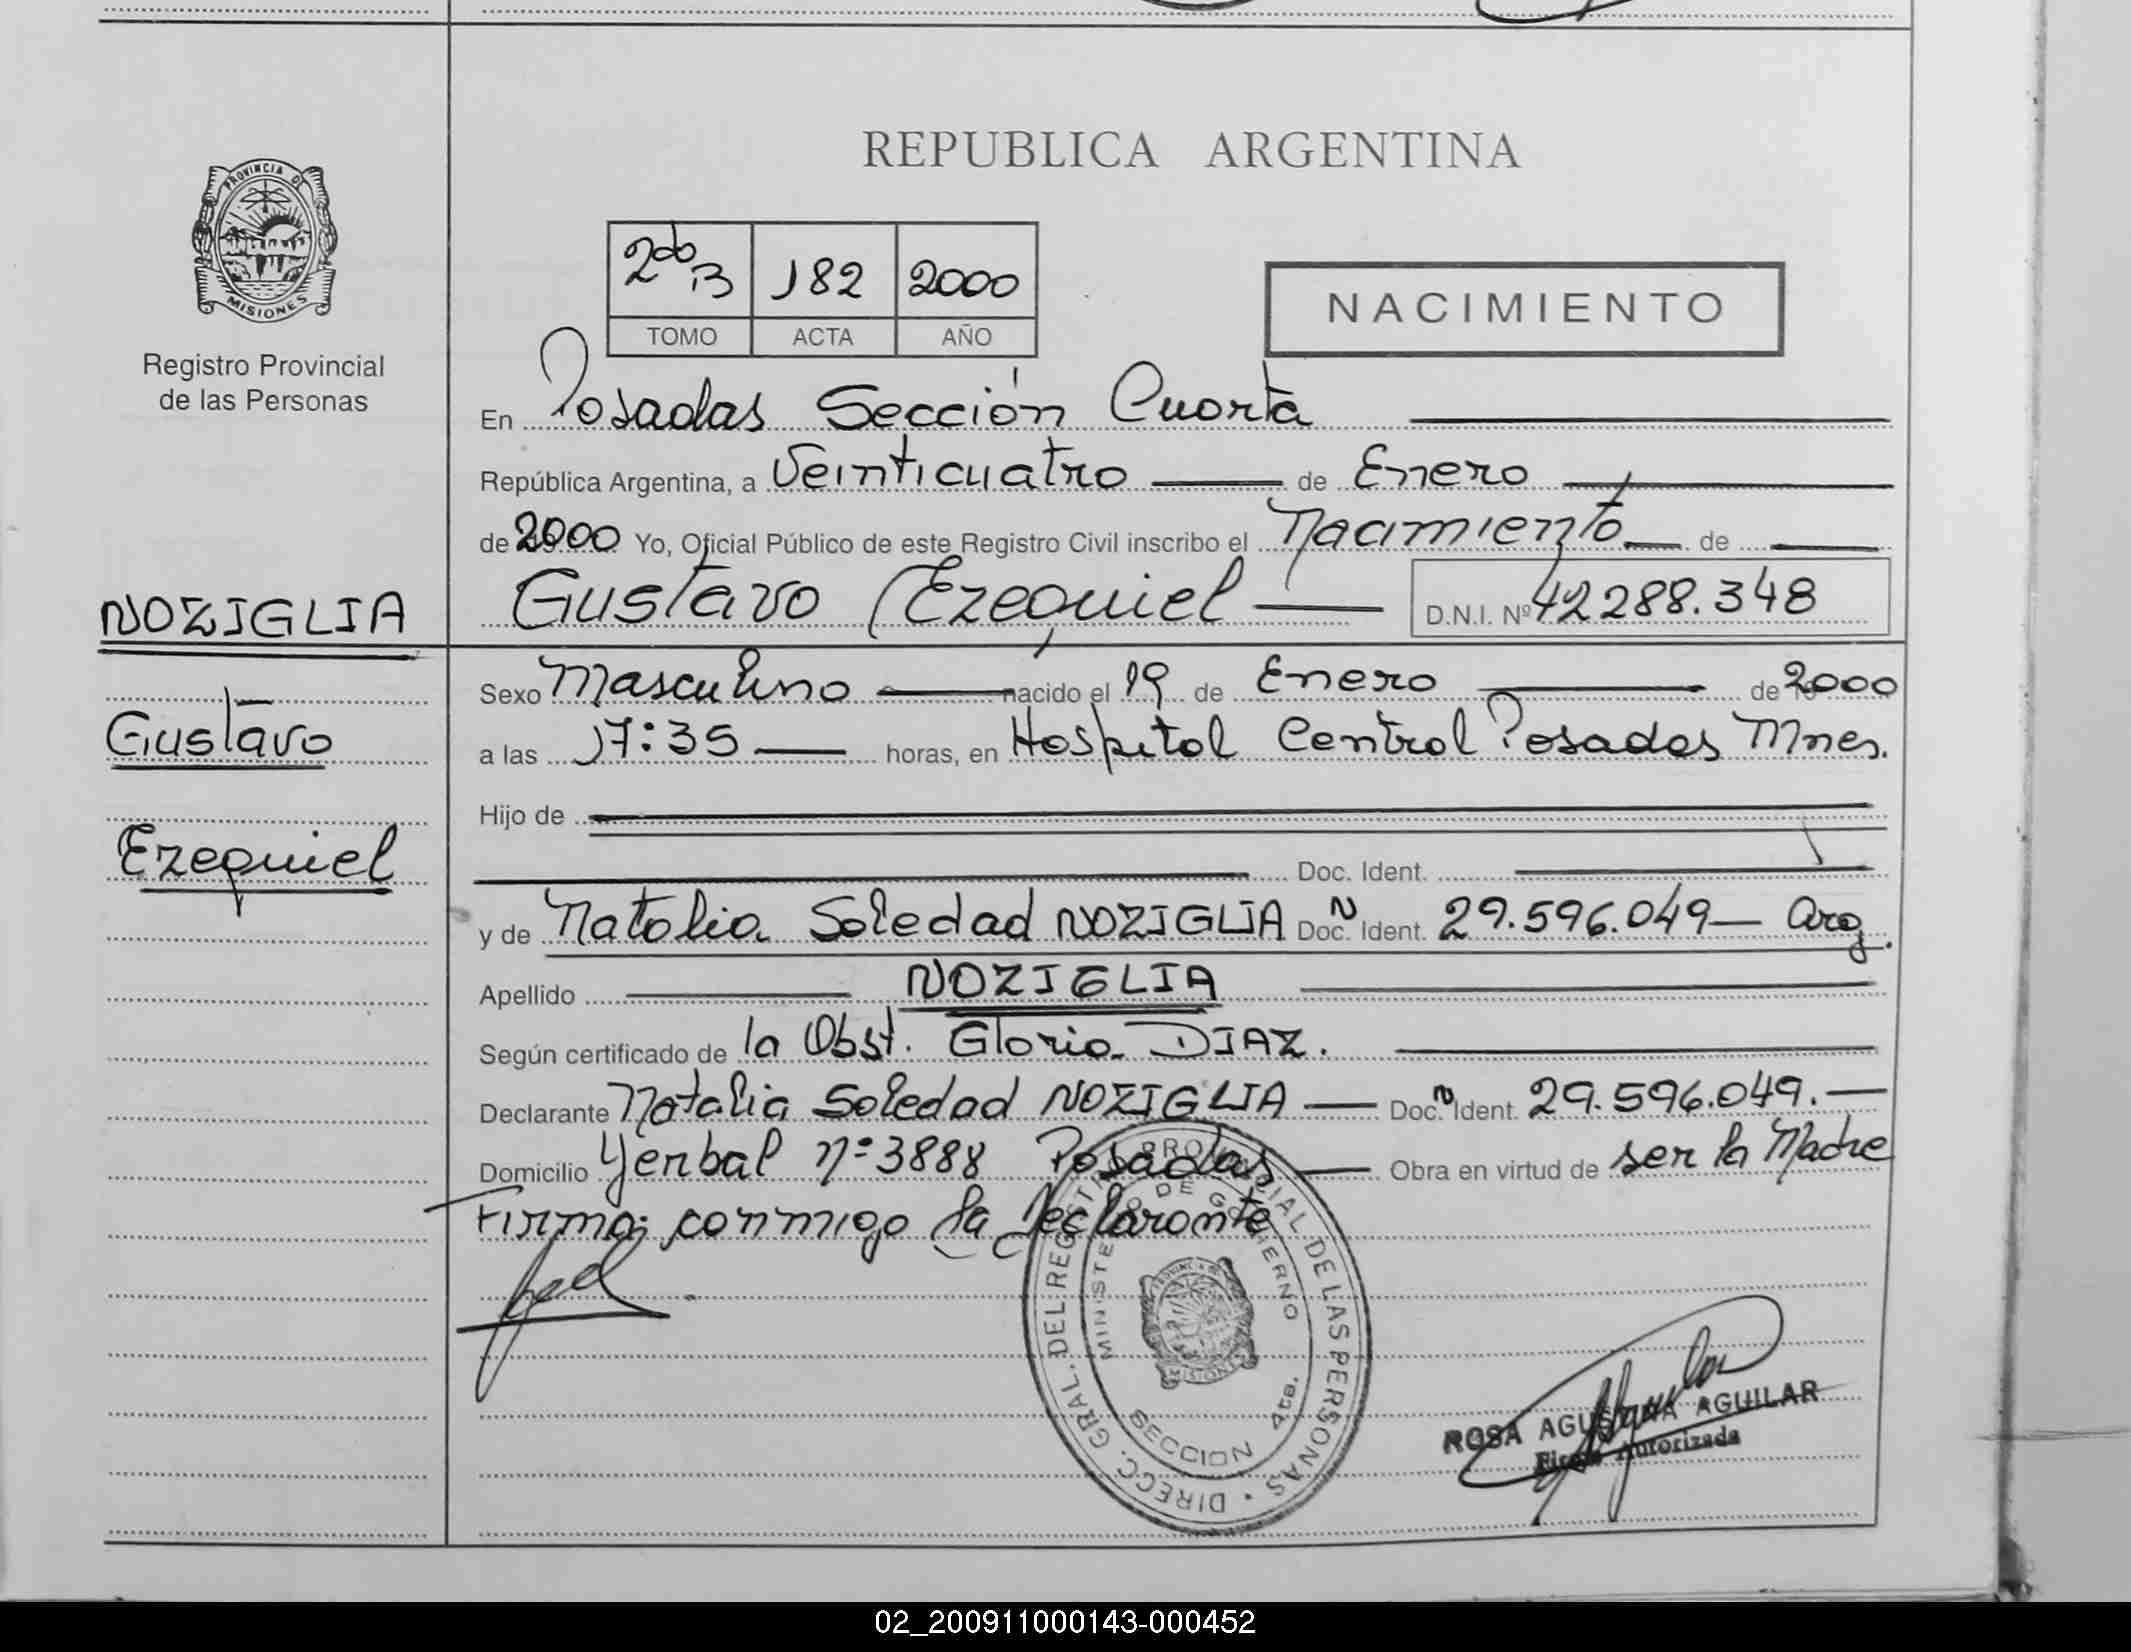 REPUBLICA ARGENTINA
PROVINCIA DE
MISIONES
Registro Provincial
de las Personas
2do B 182 2000
TOMO ACTA AÑO
NACIMIENTO
En Posadas Sección Cuarta
República Argentina, a Veinticuatro de Enero
de 2000 Yo, Oficial Público de este Registro Civil inscribo el Nacimiento de
Gustavo Ezequiel D.N.I. Nº 42288.348
NOZIGLIA
Gustavo
Ezequiel
Sexo Masculino nacido el 19 de Enero de 2000
a las 17:35 horas, en Hospital Central Posadas Mnes.
Hijo de
Doc. Ident.
y de Natalia Soledad NOZIGLIA Doc. N Ident. 29.596.049 Arg.
Apellido NOZIGLIA
Según certificado de la Obst. Gloria DIAZ.
Declarante Natalia Soledad NOZIGLIA Doc. N Ident. 29.596.049.
Domicilio Yerbal nº 3888 Posadas Obra en virtud de ser la Madre
Firma conmigo la declarante
DIRECC. GRAL. DEL REGISTRO PROVINCIAL DE LAS PERSONAS
MINISTERIO DE GOBIERNO
PROVINCIA DE
MISIONES
SECCION 4ta.
ROSA AGUSTINA AGUILAR
Firma Autorizada
02_200911000143-000452